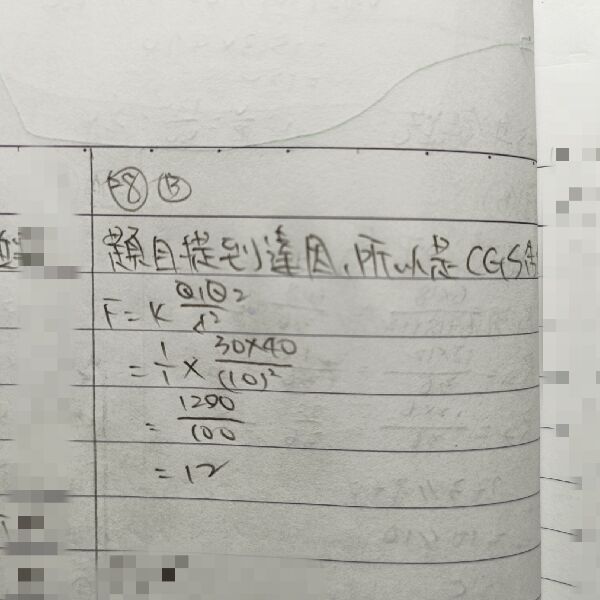 58 B
題目提到達因,所以是CGS制
F=K Q1Q2/d²
=1/1×30×40/(10)²
=1200/100
=12